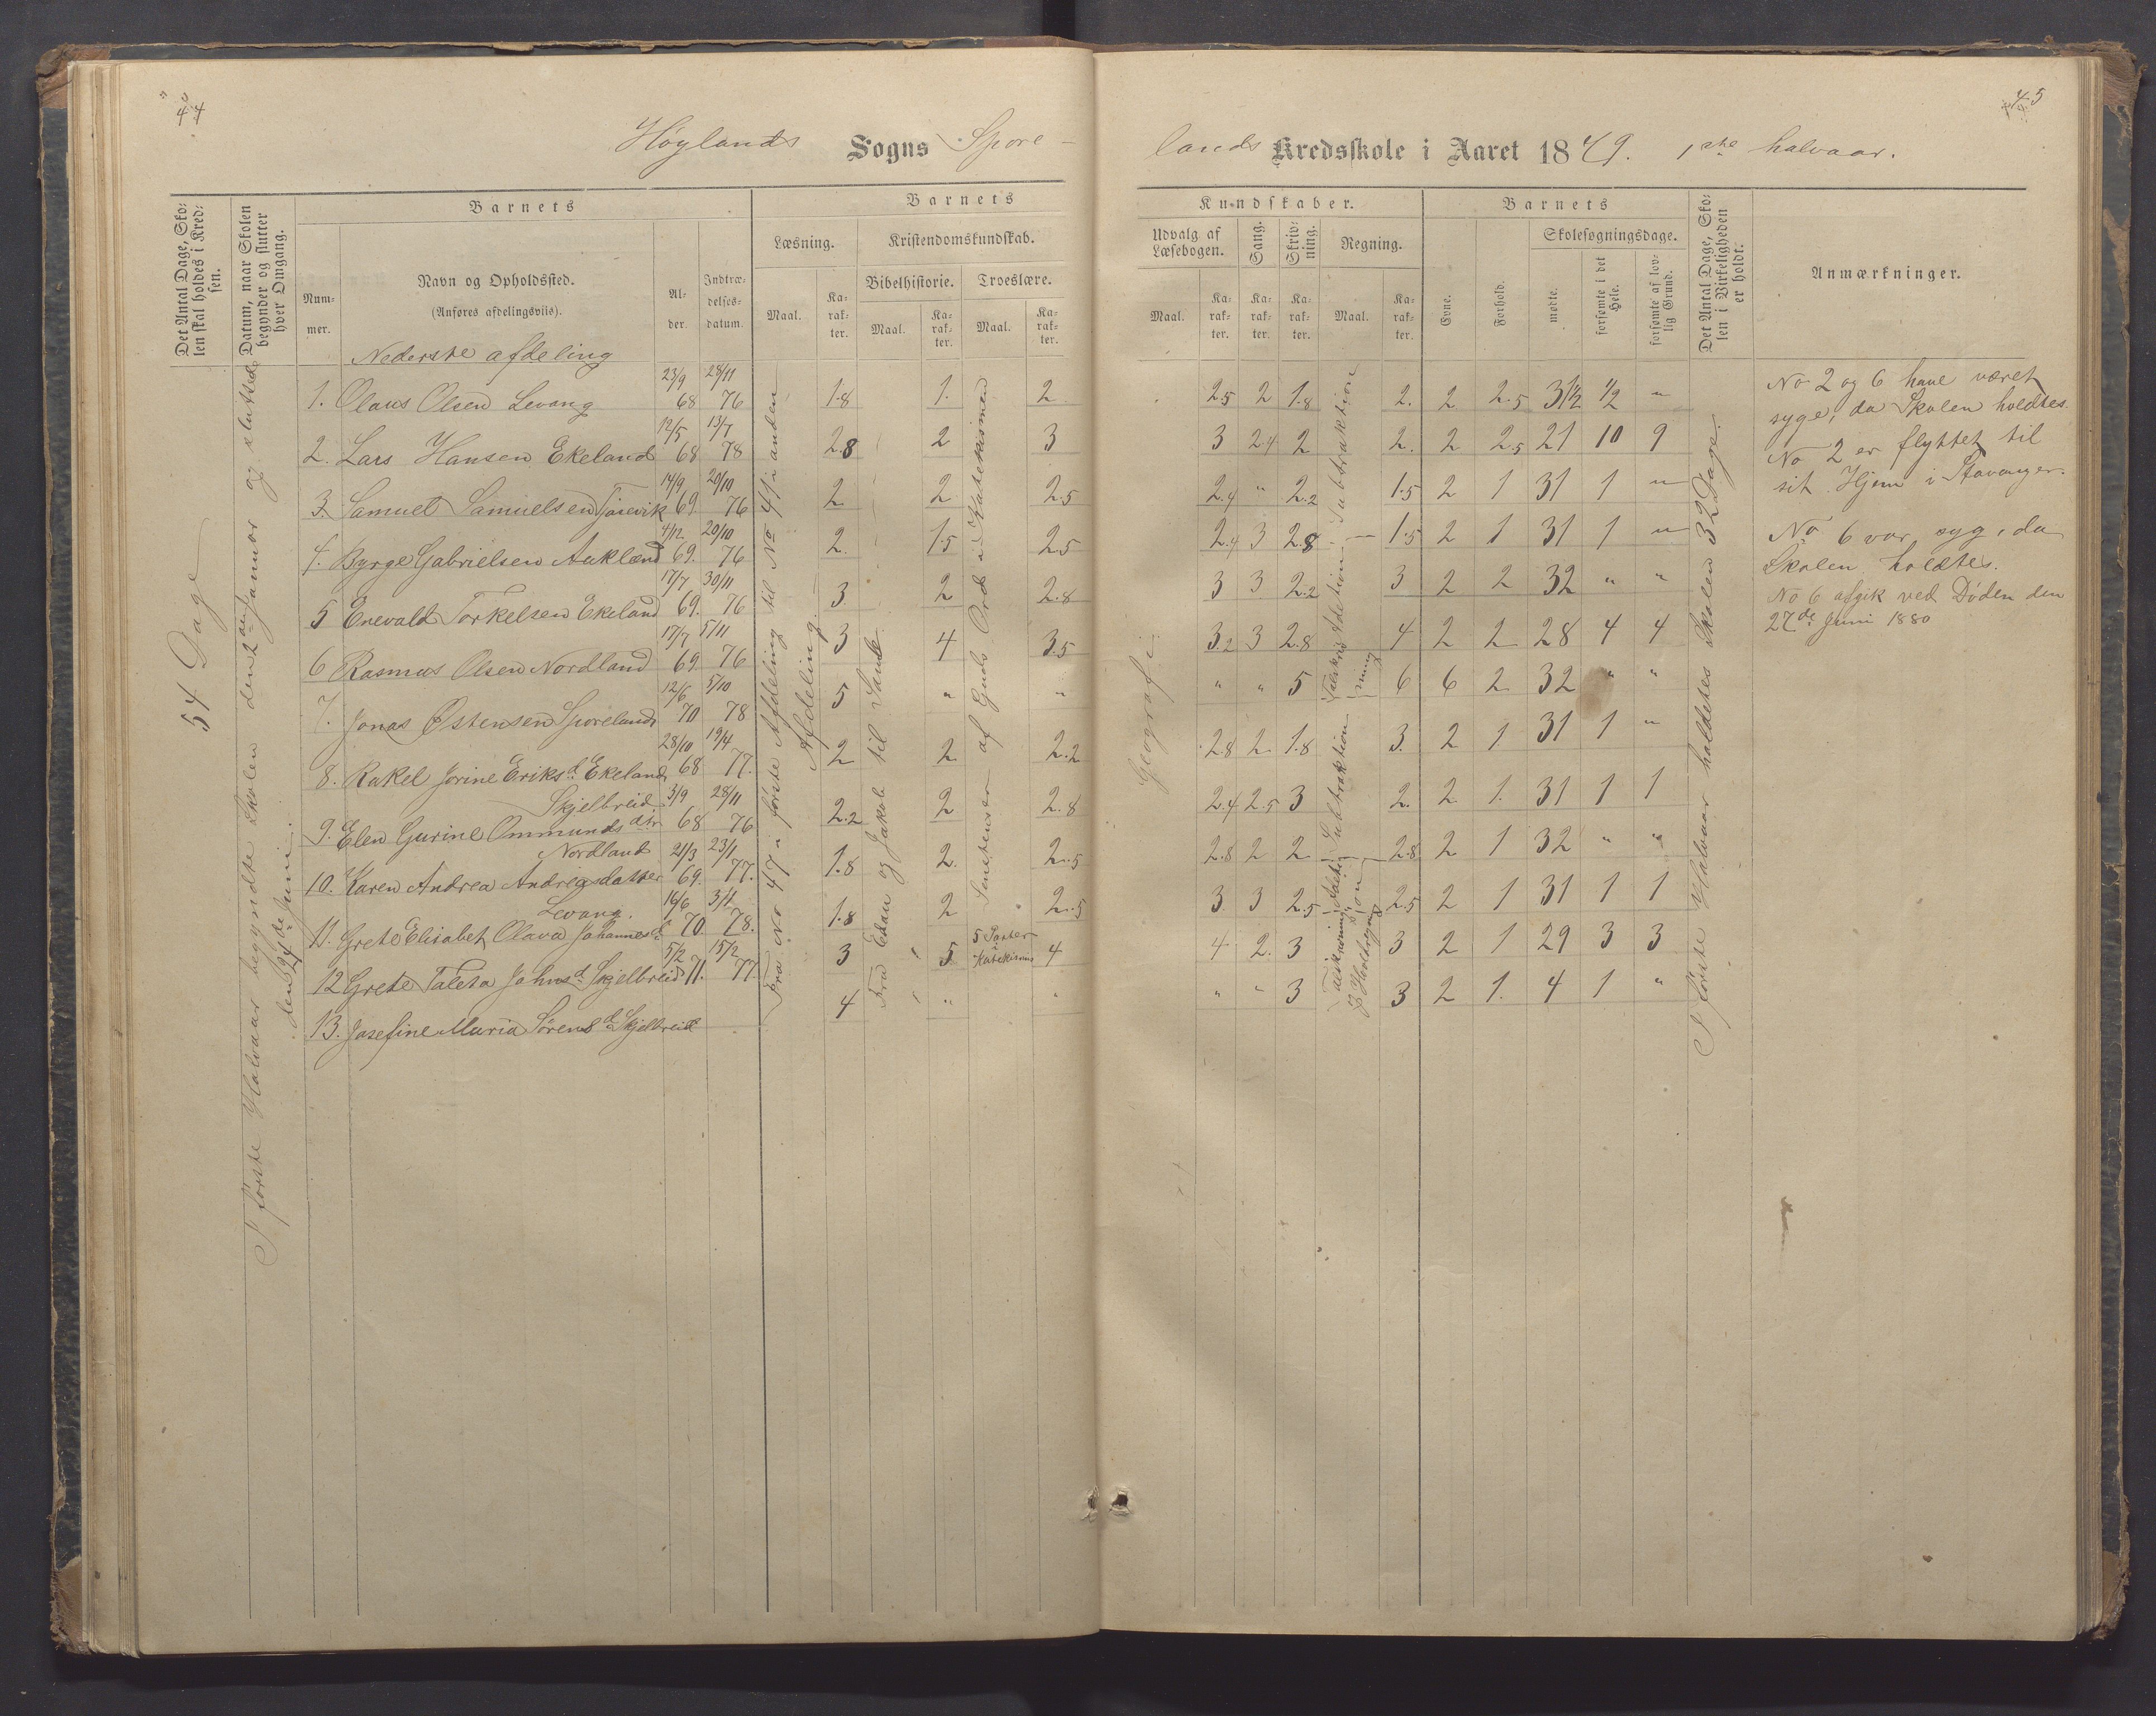 44
45
Høylands Sogns Spore-
lands Kredsskole i Aaret 1879. 1ste halvaar.
Det Antal Dage, Sko-
len skal holdes i Kred-
sen.
Datum, naar Skolen
begynder og slutter
hver Omgang.
Barnets
Num-
mer.
Navn og Opholdssted.
(Anføres afdelingsviis).
Al-
der.
Indtræ-
delses-
datum.
Barnets
Læsning.
Maal.
Ka-
rak-
ter.
Kristendomskundskab.
Bibelhistorie.
Maal.
Ka-
rak-
ter.
Troeslære.
Maal.
Ka-
rak-
ter.
Kundskaber.
Udvalg af
Læsebogen.
Maal.
Ka-
rak-
ter.
Sang.
Ka-
rak-
ter.
Skriv-
ning.
Ka-
rak-
ter.
Regning.
Maal.
Ka-
rak-
ter.
Barnets
Evne.
Forhold.
Skolesøgningsdage.
mødte.
forsømte i det
Hele.
forsømte af lov-
lig Grund.
Det Antal Dage, Sko-
len i Virkeligheden
er holdt.
Anmærkninger.
54 Dage
I første Halvaar begyndte Skolen den 2den Januar og sluttede
den 24de Juni.
Nederste afdeling
1. Olaus Olsen Levang 23/9 68 28/11 76 1.8 1. 2 2.5 2 1.8 2. 2 2.5 31 1/2 1/2 "
2. Lars Hansen Ekeland 12/5 68 13/7 78 2.8 2 3 3 2.4 2 2. 2 2.5 21 10 9
3. Samuel Samuelsen Tjosevik 14/9 69. 20/10 76 2 2 2.5 2.4 " 2.2 1.5 2 1 31 1 "
4. Byrge Gabrielsen Aukland 4/12 69. 20/10 76 2. 1.5 2.5 2.4 3 2.8 1.5 2 1 31 1 "
5 Enevald Torkelsen Ekeland 17/7 69. 30/11 76 3 2 2.8 3 3 2.2 3 2 2 32 " "
6 Rasmus Olsen Nordland 17/7 69. 5/11 76 3 4 3.5 3.2 3 2.8 4 2 2 28 4 4
7. Jonas Østensen Sporeland 12/6 70 5/10 78 5 " " " " 5 6 6 2 32 " "
8. Rakel Jorine Eriksd. Ekeland 28/10 68 19/4 77. 2 2 2.2 2.8 2. 1.8 3. 2 1 31 1 "
Skjelbreid
9. Elen Gurine Ommundsdtr 3/9 68 28/11 76 2.2 2 2.8 2.4 2.5 3 2. 2 1. 31 1 1
Nordland
10. Karen Andrea Andreasdatter 21/3 69. 23/1 77. 1.8 2. 2.5 2.8 2 2 2.8 2 1 32 " "
Levang.
11. Grete Elisabet Olava Johannesd. 16/6 70. 3/4 78. 1.8 2 2.5 3. 3 2.5 2.5 2 1 31 1 1
12 Grete Taleta Johnsd. Skjelbreid 5/2 71. 15/2 77 3 5 4 4 2. 3 3 2 1 29 3 3
13. Josefine Maria Sørensd. Skjelbreid 4 " " " " 3 3 2 1. 4 1 "
Fra No 47 i første Afdeling til No 41 i anden
Afdeling.
Fra Esau og Jakob til Saul
Sentenser af Guds Ord i Katekismen
5 Parter
Katekismus
Geografi
Subtraktion
Adetion
Subtraktion
I første Halvaar holdtes Skolen 32 Dage.
No 2 og 6 have været
syge, da Skolen holdtes.
No 2 er flyttet til
sit Hjem i Stavanger.
No 6 var syg, da
Skolen holdtes.
No 6 afgik ved Døden den
27de Juni 1880